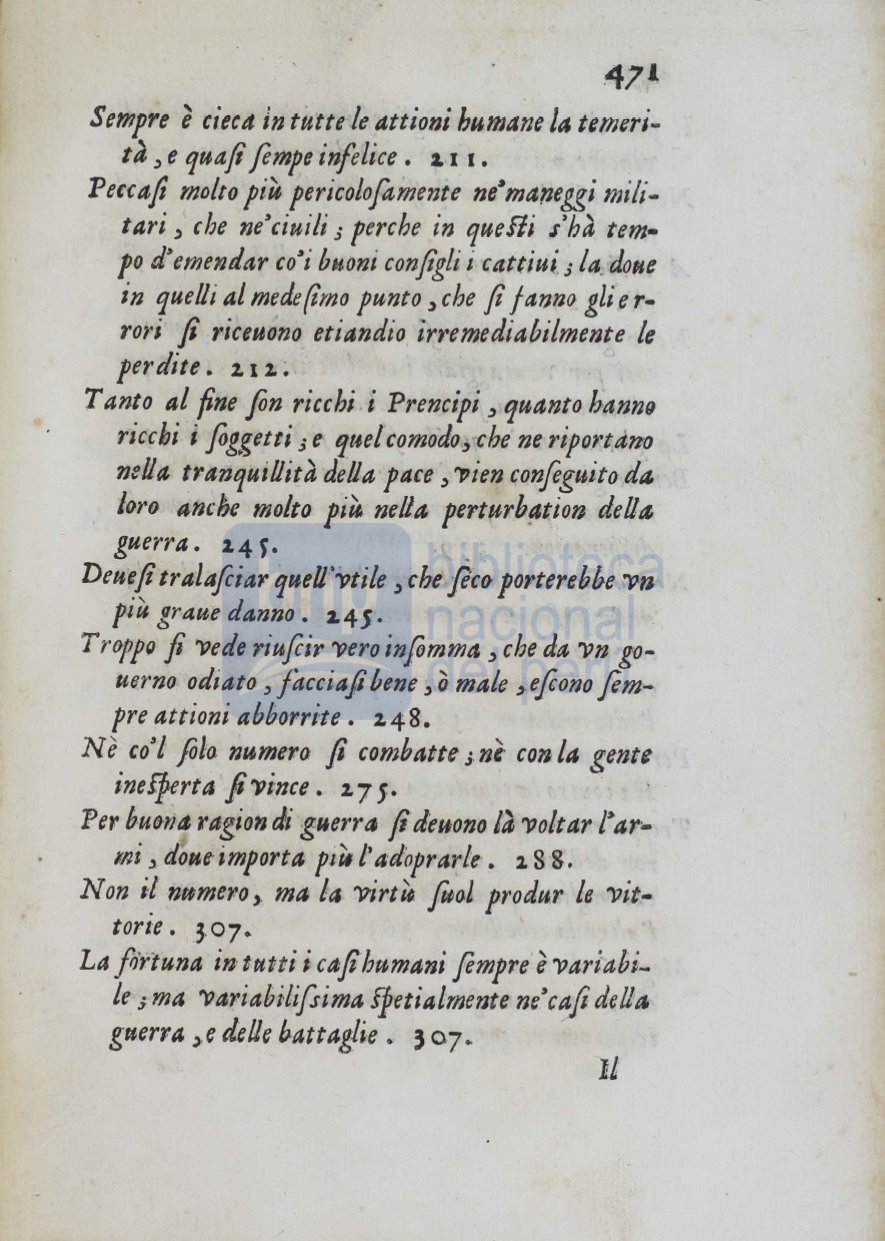 471
Sempre è cieca in tutte le attioni humane la temeri-
tà, e quaſi ſempe infelice. 211.
Peccaſi molto più pericoloſamente ne'maneggi mili-
tari, che ne'ciuili; perche in queſti s'hà tem-
po d'emendar co'i buoni conſigli i cattiui; la doue
in quelli al medeſimo punto, che ſi fanno gli er-
rori ſi riceuono etiandio irremediabilmente le
perdite. 212.
Tanto al fine ſon ricchi i Prencipi, quanto hanno
ricchi i ſoggetti; e quel comodo, che ne riportano
nella tranquillità della pace, vien conſeguito da
loro anche molto più nella perturbation della
guerra. 245.
Deueſi tralaſciar quell'vtile, che ſeco porterebbe vn
più graue danno. 245.
Troppo ſi vede riuſcir vero inſomma, che da vn go-
uerno odiato, facciaſi bene, ò male, eſcono ſem-
pre attioni abborrite. 248.
Nè co'l ſolo numero ſi combatte; nè con la gente
ineſperta ſi vince. 275.
Per buona ragion di guerra ſi deuono là voltar l'ar-
mi, doue importa più l'adoprarle. 288.
Non il numero, ma la virtù ſuol produr le vit-
torie. 307.
La fortuna in tutti i caſi humani ſempre è variabi-
le; ma variabiliſsima ſpetialmente ne'caſi della
guerra, e delle battaglie. 307.
Il
biblioteca
nacional
del perú